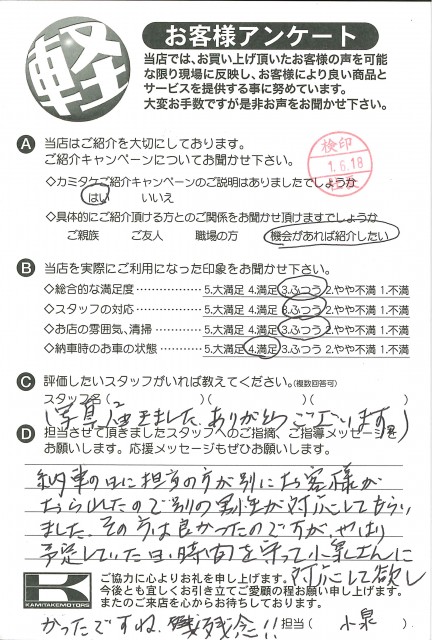 軽
お客様アンケート
当店では、お買い上げ頂いたお客様の声を可能
な限り現場に反映し、お客様により良い商品と
サービスを提供する事に努めています。
大変お手数ですが是非お声をお聞かせ下さい。
A 当店はご紹介を大切にしております。
ご紹介キャンペーンについてお聞かせ下さい。
検印
1.6.18
◇カミタケご紹介キャンペーンのご説明はありましたでしょうか
はい いいえ
◇具体的にご紹介頂ける方とのご関係をお聞かせ頂けますでしょうか
ご親族 ご友人 職場の方 機会があれば紹介したい
B 当店を実際にご利用になった印象をお聞かせ下さい。
◇総合的な満足度 5.大満足 4.満足 3.ふつう 2.やや不満 1.不満
◇スタッフの対応 5.大満足 4.満足 3.ふつう 2.やや不満 1.不満
◇お店の雰囲気、清掃 5.大満足 4.満足 3.ふつう 2.やや不満 1.不満
◇納車時のお車の状態 5.大満足 4.満足 3.ふつう 2.やや不満 1.不満
C 評価したいスタッフがいれば教えてください。(複数回答可)
スタッフ名( )( )( )
きました、ありがとうございます)
D 担当させて頂きましたスタッフへのご指摘、ご指導メッセージを
お願いします。応援メッセージもぜひお願いします。
納車の日に担当の方が別にお客様が
おられたので別の男性が対応してもらい
ました。その方は良かったのですが、やはり
予定していた日、時間を守って小泉さんに
対応して欲し
K
KAMITAKEMOTORS
ご協力に心よりお礼を申し上げます。
今後とも宜しくお引き立てご愛顧の程お願い申し上げます。
またのご来店を心からお待ちしております。
かったですね、残念!! 担当( 小泉 )